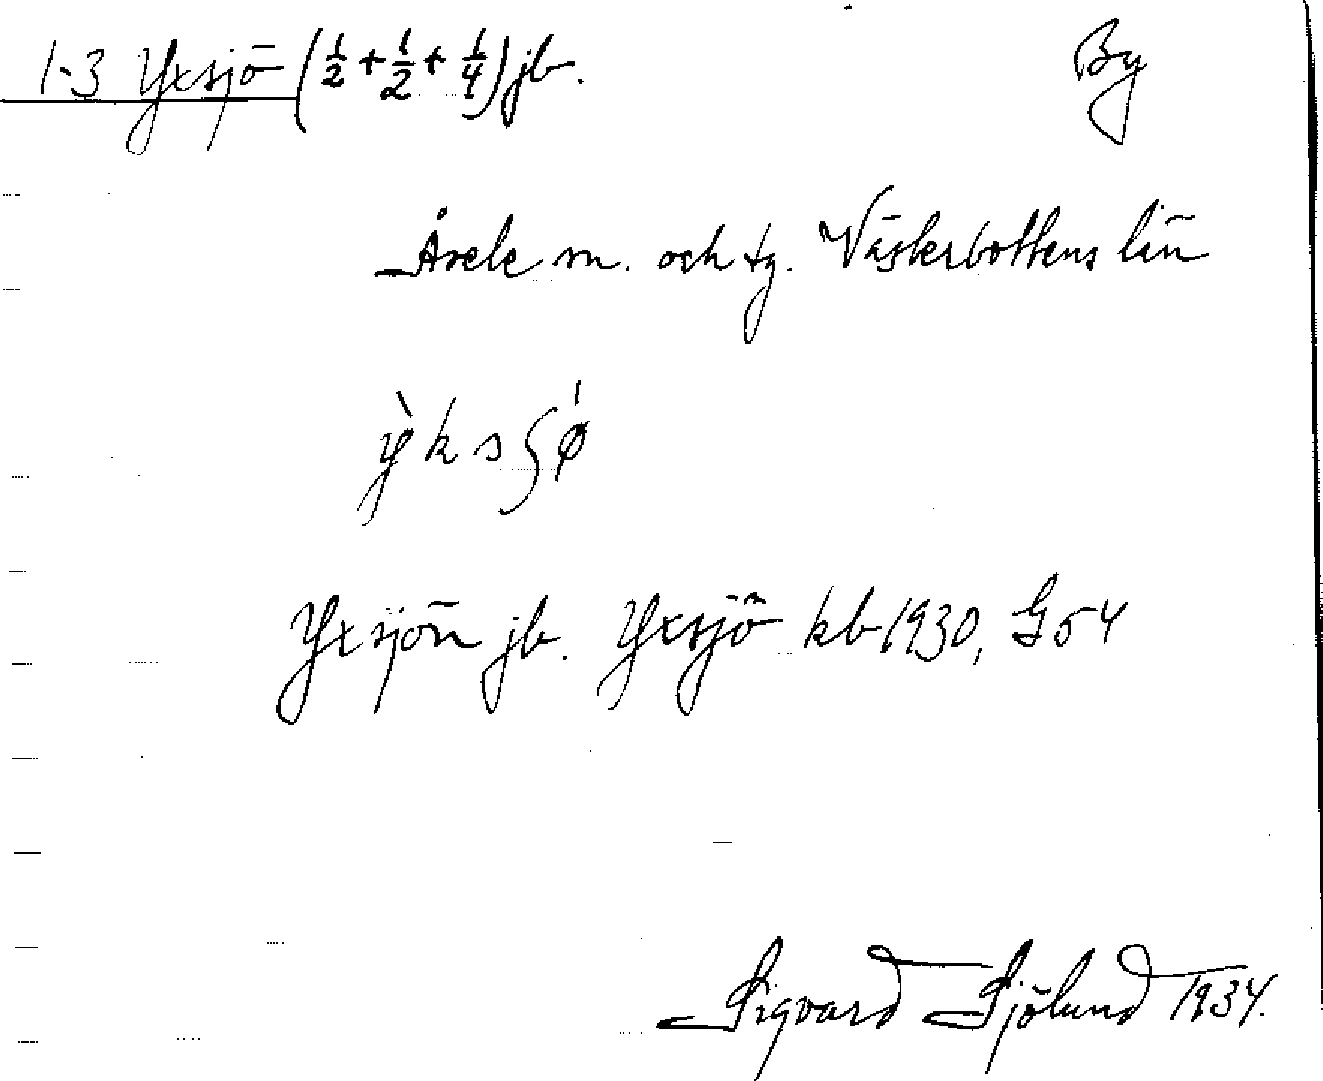 1-3 Yxsjö (1/2 + 1/2 + 1/4) jb. By
Åsele sn. och tg. Västerbottens län
ỳksʃǿ
Yxsjön jb. Yxsjö kb 1930, G54
Sigvard Sjölund 1934.